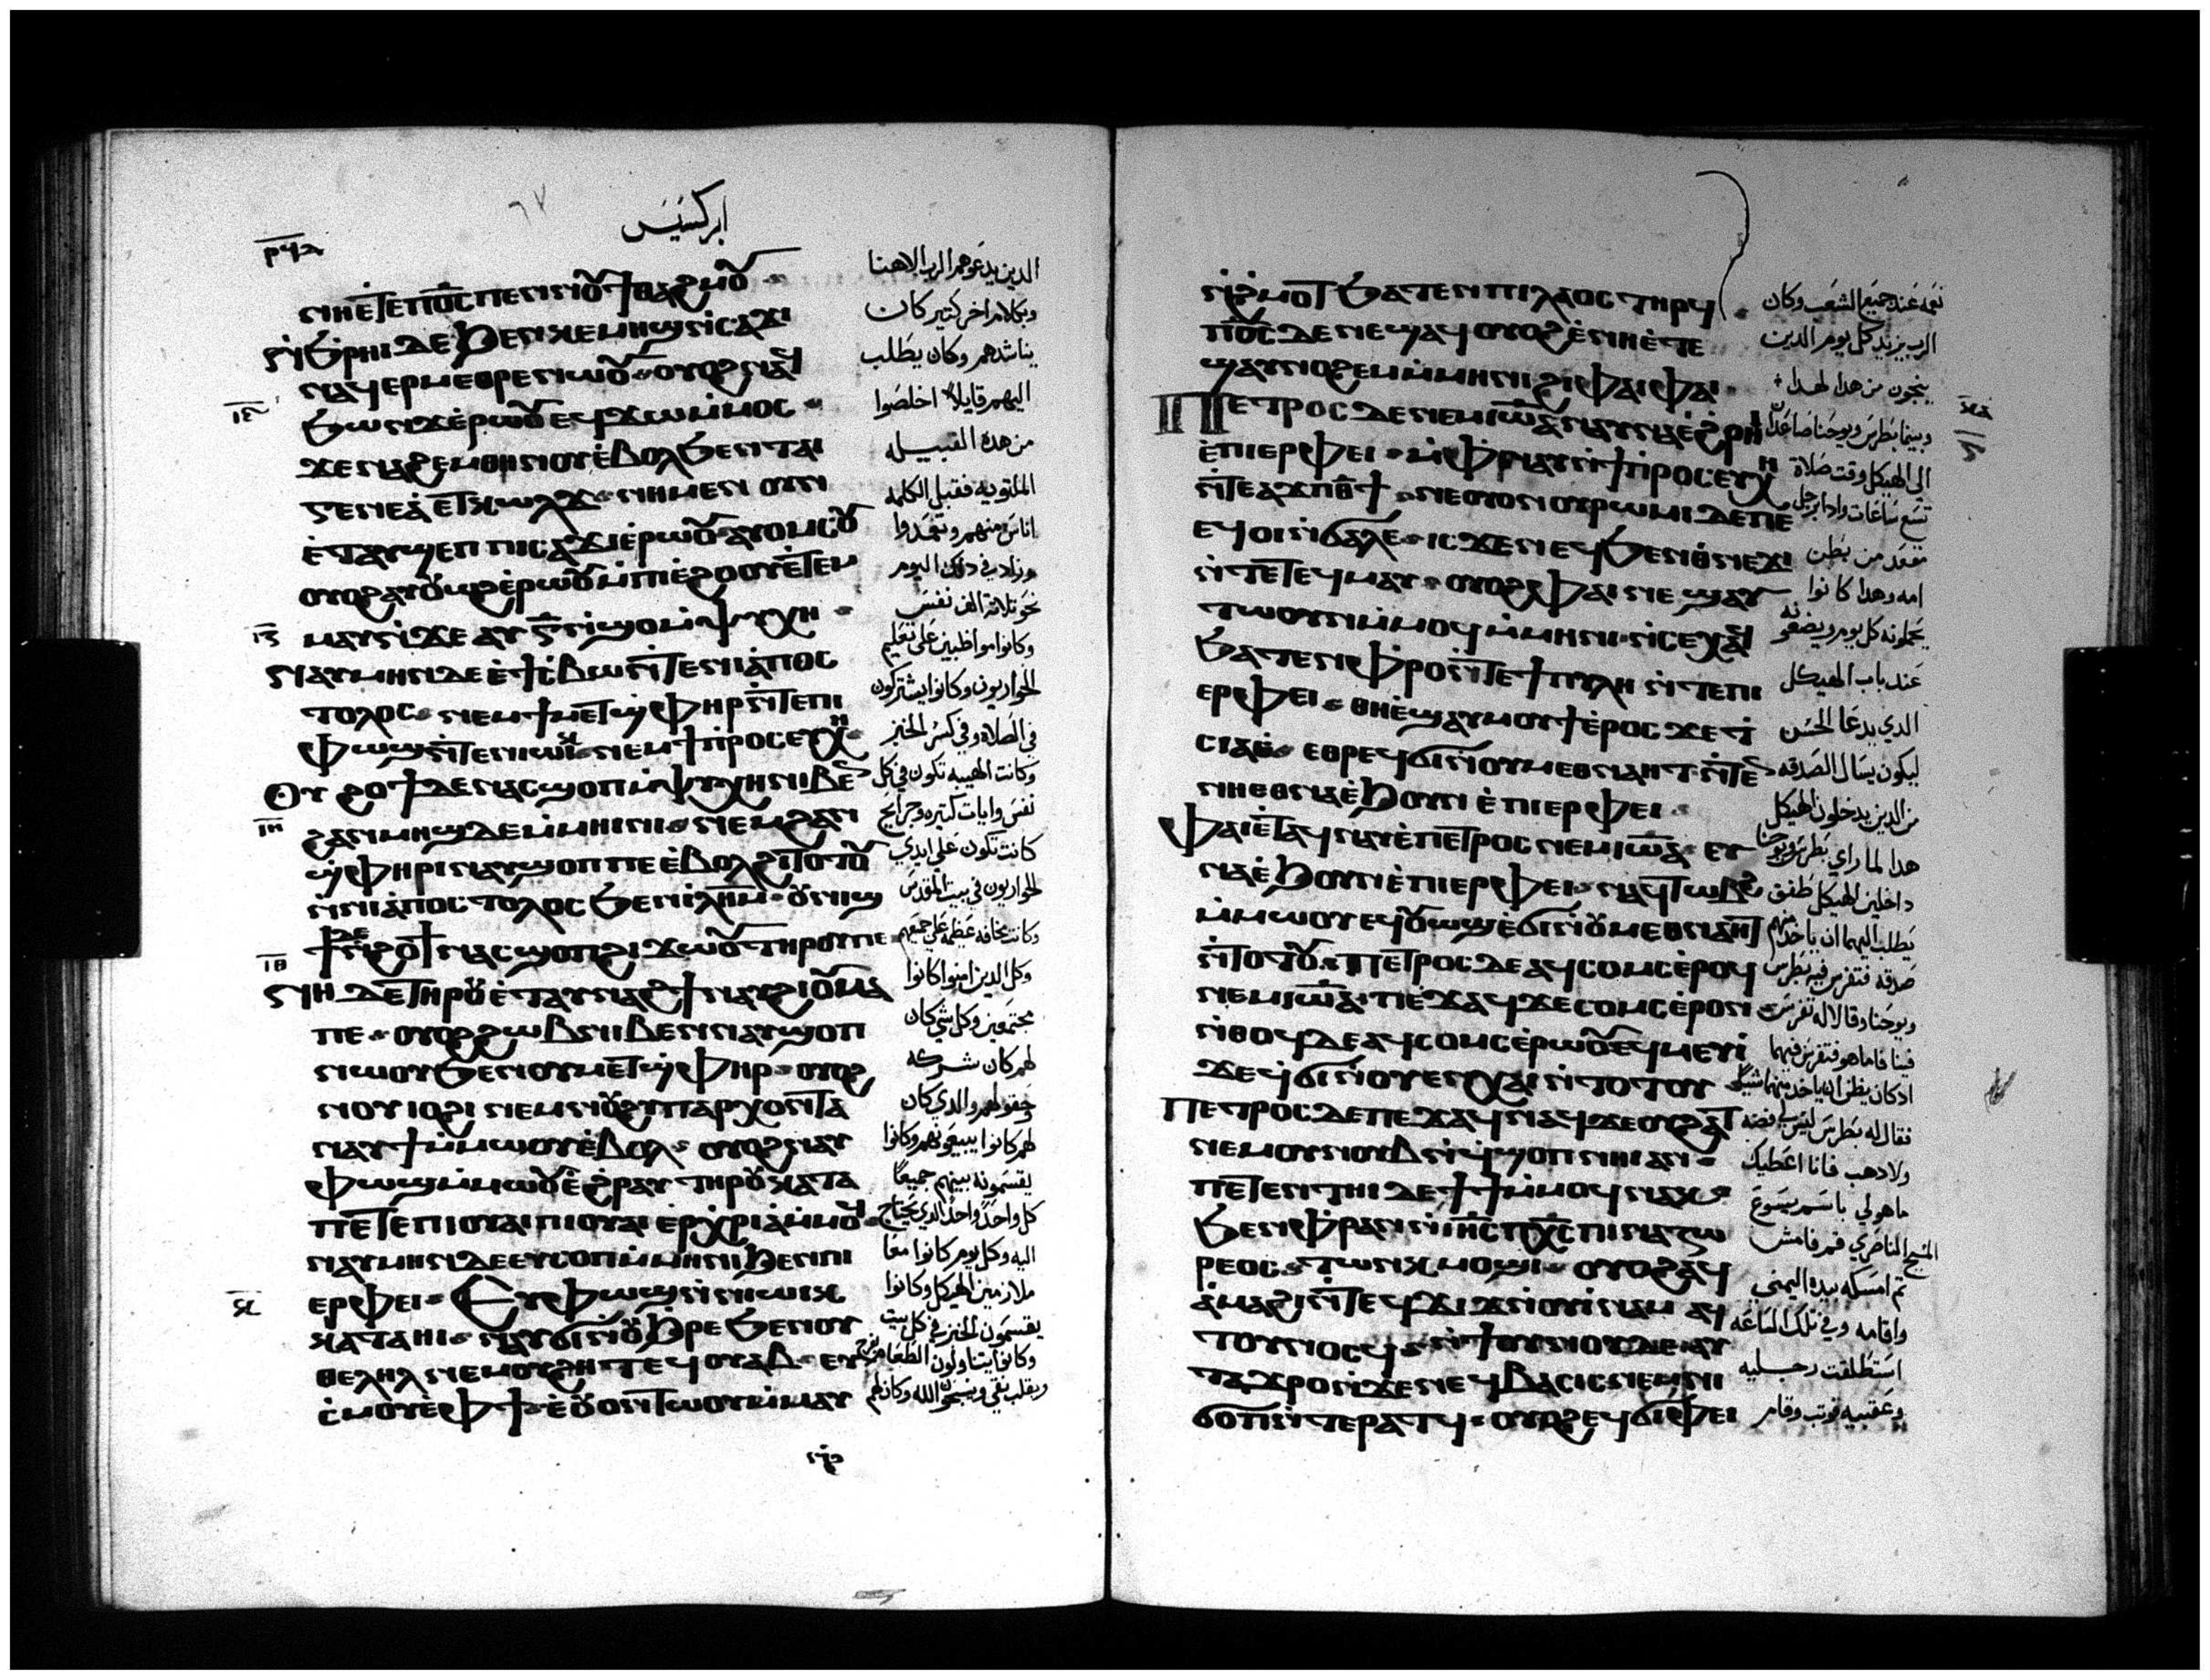 ابركسيس
ⲛⲏⲉⲧⲉⲡⲟ̅ⲥ̅ⲡⲉⲛⲛⲟⲩϯⲑⲁϩⲙⲟⲩ
ⲛ̀ϧ̀ⲣⲏⲓ ⲇⲉ ϧⲉⲛⲕⲉⲙⲏϣⲛ̀ⲥⲁϫⲓ
ⲛⲁϥⲉⲣⲙⲉⲑⲣⲉⲛⲱⲟⲩ ⲟⲩⲟϩⲛⲁϥ
ϯϩⲱⲛϫⲉ̀ⲣⲱⲟⲩⲉϥϫⲱⲙ̀ⲙⲟⲥ
ϫⲉⲛⲁϩⲉⲙⲑⲏⲛⲟⲩⲉ̀ⲃⲟⲗϧⲉⲛⲧⲁⲓ
ⲅⲉⲛⲉⲁ̀ⲉⲧⲕⲱⲗϫ
ⲉ̀ⲧⲁⲩϣⲉⲡ ⲡⲓⲥⲁϫⲓⲉ̀ⲣⲱⲟⲩ ⲁⲩⲟⲙⲥⲟⲩ
ⲟⲩⲟϩⲁⲩⲟⲩⲱϩⲉ̀ⲣⲱⲟⲩⲙ̀ⲡⲓⲉ̀ϩⲟⲟⲩⲉ̀ⲧⲉⲙ
ⲙⲁⲩⲛ̀ϫⲉ ⲁⲩ ⲅ̅ⲛ̀ϣⲟⲙ̀ⲯⲩⲭⲏ
ⲛⲁⲩⲙⲏⲛⲇⲉ ⲉ̀ϯⲥ̀ⲃⲱⲛ̀ⲧⲉⲛⲓⲁ̀ⲡⲟⲥ
ⲧⲟⲗⲟⲥ ⲛⲉⲙϯⲙⲉⲧϣ̀ⲫⲏⲣⲛ̀ⲧⲉⲡⲓ
ⲫⲱϣⲛ̀ⲧⲉⲛⲓⲱⲓⲕ ⲛⲉⲙϯⲡⲣⲟⲥⲉⲩⲭⲏ
ⲟⲩ ϩⲟϯⲇⲉⲛⲁⲥϣⲟⲡⲙ̀ⲯⲩⲭⲏⲛⲓⲃⲉⲛ
ϩⲁⲛⲙⲏϣⲇⲉⲙ̀ⲙⲏⲓⲛⲓ ⲛⲉⲙϩⲁⲛ
ϣ̀ⲫⲏⲣⲓⲛⲁⲩϣⲟⲡⲡⲉ ⲉ̀ⲃⲟⲗϩⲓⲧⲟⲧⲟⲩ
ⲛ̀ⲛⲓⲁ̀ⲡⲟⲥⲧⲟⲗⲟⲥ ϧⲉⲛⲓⲗ̅ⲏ̅ⲙ̅ ⲟⲩⲛⲓϣ
ϯⲇⲉⲛ̀ϩⲟϯ ⲛⲁⲥϣⲟⲡϩⲓϫⲱⲟⲩⲧⲏⲣⲟⲩⲡⲉ
ⲛⲏ ⲇⲉⲧⲏⲣⲟⲩⲉ̀ⲧⲁⲩⲛⲁϩϯⲛⲁⲩϩⲓⲟⲩⲙⲁ
ⲡⲉ ⲟⲩⲟϩϩⲱⲃⲛⲓⲃⲉⲛⲛⲁⲩϣⲟⲡ
ⲛⲱⲟⲩϧⲉⲛⲟⲩⲙⲉⲧϣ̀ⲫⲏⲣ ⲟⲩⲟϩ
ⲛⲟⲩⲓⲟϩⲓ ⲛⲉⲙⲛⲟⲩϩⲩⲡⲁⲣⲭⲟⲛⲧⲁ
ⲛⲁⲩϯⲙ̀ⲙⲱⲟⲩⲉ̀ⲃⲟⲗ ⲟⲩⲟϩⲛⲁⲩ
ⲫⲱϣⲙ̀ⲙⲱⲟⲩⲉ̀ϩⲣⲁⲩ ⲧⲏⲣⲟⲩⲕⲁⲧⲁ
ⲡⲉⲧⲉⲡⲓⲟⲩⲁⲓⲡⲓⲟⲩⲁⲓ ⲉⲣⲭⲣⲓⲁⲙ̀ⲙⲟϥ
ⲛⲁⲩⲙⲏⲛⲇⲉⲉⲩⲥⲟⲡⲙ̀ⲙⲏⲛⲓϧⲉⲛⲡⲓ
ⲉⲣⲫⲉⲓ ⲉⲩⲫⲱϣⲛ̀ⲛⲓⲱⲓⲕ
ⲕⲁⲧⲁⲏⲓ ⲛⲁⲩϭⲓⲛ̀ⲟⲩϧⲣⲉ ϧⲉⲛⲟⲩ
ⲑⲉⲗⲏⲗⲛⲉⲙⲟⲩϩⲏⲧ ⲉϥⲟⲩⲁⲃ ⲉⲩ
ⲥ̀ⲙⲟⲩⲉ̀ⲫϯ ⲉ̀ⲟⲩⲟⲛⲧⲱⲟⲩⲙ̀ⲙⲁⲩ
الدين يدعوهم الرب الاهنا
وبكلام اخر كتير كان
يناشدهم وكان يطلب
اليهم قايلا اخلصوا
من هده القبيله
الملتويه فقبل الكلمه
اناس منهم وتعمدوا
وزاد في دلك اليوم
نحو تلاتة الف نفس
وكانوا مواظبين على تعليم
الحواريون وكانوا يشتركون
في الصلاه وفي كسر الخبز
وكانت الهيبه تكون في كل
نفس وايات كتيره وجرايح
كانت تكون على ايدي
الحواريون في بيت المقدس
وكانت مخافه عظيمه على جميعهم
وكل الدين امنوا كانوا
مجتمعين وكل شي كان
لهم كان شركه
وحقولهم والدي كان
لهم كانوا يبيعونهم وكانوا
يقسمونه بينهم جميعًا
كل واحدٍ واحد الدي يحتاج
اليه وكل يوم كانوا معا
ملازمين الهيكل وكانوا
يقسمون الخبز في كل بيت
وكانوا يتناولون الطعام بفرح
وبقلب نقي ويسبحون الله وكان لهم
ⲛ̀ϩ̀ⲙⲟⲧ ϧⲁⲧⲉⲛⲡⲓⲗⲁⲟⲥ ⲧⲏⲣϥ
ⲡⲟ̅ⲥ̅ ⲇⲉ ⲛⲉϣⲁϥ ⲟⲩⲟϩⲉ̀ⲛⲏⲉ̀ⲧⲉ
ϣⲁⲩⲛⲟϩⲉⲙⲙ̀ⲙⲏⲛⲓ ϩⲓⲫⲁⲓⲫⲁⲓ
ⲡⲉⲧⲣⲟⲥ ⲇⲉ ⲛⲉⲙⲓⲱ̅ⲁ̅ ⲛⲁⲩⲛⲁⲉ̀ϩ̀ⲣⲏⲓ
ⲉ̀ⲡⲓⲉⲣⲫⲉⲓ ⲙ̀ⲫⲛⲁⲩⲛ̀ϯⲡⲣⲟⲥⲉⲩⲭⲏ
ⲛ̀ⲧⲉⲁϫⲡⲑ̅ϯ ⲛⲉⲟⲩⲟⲛⲟⲩⲣⲱⲙⲓ ⲇⲉⲡⲉ
ⲉϥⲟⲓⲛ̀ϭⲁⲗⲉ ⲓⲥϫⲉⲛⲉϥϧⲉⲛⲑ̀ⲛⲉϫⲓ
ⲛ̀ⲧⲉⲧⲉϥⲙⲁⲩ ⲟⲩⲟϩⲫⲁⲓ ⲛⲉ ϣⲁⲩ
ⲧⲱⲟⲩⲛⲙ̀ⲙⲟϥ ⲙ̀ⲙⲏⲛⲓ ⲛ̀ⲥⲉⲭⲁϥ
ϧⲁⲧⲉⲛⲫ̀ⲣⲟⲛ̀ⲧⲉϯⲡⲩⲗⲏ ⲛ̀ⲧⲉⲡⲓ
ⲉⲣⲫⲉⲓ ⲑⲏⲉ̀ϣⲁⲩⲙⲟⲩϯⲉ̀ⲣⲟⲥ ϫⲉϯ
ⲥⲁⲓⲉ̀ ⲉⲑⲣⲉϥϭⲓⲛ̀ⲟⲩⲙⲉⲑⲛⲁⲏⲧ ⲛ̀ⲧⲉⲛ
ⲛⲏⲉⲑⲛⲁⲉ̀ϧⲟⲩⲛ ⲉ̀ⲡⲓⲉⲣⲫⲉⲓ
ⲫⲁⲓⲉ̀ⲧⲁϥⲛⲁⲩⲉ̀ⲡⲉⲧⲣⲟⲥ ⲛⲉⲙⲓⲱ̅ⲁ̅ ⲉⲩ
ⲛⲁⲉ̀ϧⲟⲩⲛⲉ̀ⲡⲓⲉⲣⲫⲉⲓ ⲛⲁϥⲧⲱⲃϩ
ⲙ̀ⲙⲱⲟⲩⲉϥⲟⲩⲱϣⲉ̀ϭⲓⲛ̀ⲟⲩⲙⲉⲑⲛⲁⲏⲧ
ⲛ̀ⲧⲟⲧⲟⲩ ⲡⲉⲧⲣⲟⲥ ⲇⲉ ⲁϥⲥⲟⲙⲥⲉ̀ⲣⲟϥ
ⲛⲉⲙⲓⲱ̅ⲁ̅ ⲡⲉϫⲁϥ ϫⲉⲥⲟⲙⲥⲉ̀ⲣⲟⲛ
ⲛ̀ⲑⲟϥ ⲇⲉ ⲁϥⲥⲟⲙⲥⲉ̀ⲣⲱⲟⲩⲉϥⲙⲉⲩⲓ̀
ϫⲉϥϭⲓⲛ̀ⲟⲩⲉⲛⲭⲁⲓⲛ̀ⲧⲟⲧⲟⲩ
ⲡⲉⲧⲣⲟⲥ ⲇⲉⲡⲉϫⲁϥⲛⲁϥ ϫⲉⲟⲩϩⲁⲧ
ⲛⲉⲙⲟⲩⲛⲟⲩⲃⲛ̀ϥ̀ϣⲟⲡ ⲛⲏⲓⲁⲛ
ⲡⲉⲧⲉⲛⲧⲏⲓ ⲇⲉ ϯϯⲙ̀ⲙⲟϥ ⲛⲁⲕ
ϧⲉⲛⲫ̀ⲣⲁⲛⲛ̀ⲓⲏ̅ⲥ̅ ⲡⲭ̅ⲥ̅ ⲡⲓⲛⲁⲍⲱ
ⲣⲉⲟⲥ ⲧⲱⲛⲕⲙⲟϣⲓ ⲟⲩⲟϩⲁϥ
ⲁ̀ⲙⲁϩⲓⲛ̀ⲧⲉϥϫⲓϫⲛ̀ⲟⲩⲓ̀ⲛⲁⲙ ⲁϥ
ⲧⲟⲩⲛⲟⲥϥ ⲛ̀ϯⲟⲩⲛⲟⲩⲇⲉⲁⲩ
ⲧⲁϫⲣⲟⲛ̀ϫⲉⲛⲉϥⲃⲁⲥⲓⲥ ⲛⲉⲙⲛⲓ
ϭⲟⲡⲛ̀ⲧⲉⲣⲁⲧϥ ⲟⲩⲟϩⲉϥϭⲓⲫⲉⲓ
نعمه عند جميع الشعب وكان
الرب يزيد كل يوم الدين
ينجون من هدا لهدا
وبينما بطرس ويوحنا صاعدان
الى الهيكل وقت صلاة
تسع ساعات وادا برجل
مقعد من بطن
امه وهدا كانوا
يحملونه كل يوم ويضعونه
عند باب الهيكل
الدي يدعا الحسن
ليكون يسال الصدقه
من الدين يدخلون الهيكل
هدا لما راي بطرس ويوحنا
داخلين الهيكل طفق
يطلب اليهما ان ياخد منهم
صدقه فتفرس فيه بطرس
ويوحنا وقالا له تفرس
فينا فاما هو فتفرس فيهما
ادكان يظن انه ياخد منهما شيًا
فقال له بطرس ليس لي فضه
ولا دهب فانا اعطيك
ما هو لي باسم يسوع
المسيح الناصري قم فامش
تم امسكه بيده اليمنى
واقامه وفي تلك الساعه
استطلقت رجليه
وعقبيه فوتب وقام